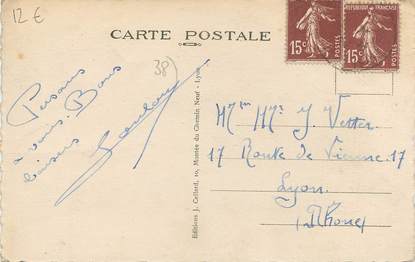 12 €
CARTE POSTALE
REPUBLIQUE FRANÇAISE
15c
15c
POSTES
POSTES
38)
Pensons
à vous. Bons
baisers
Editions J. Cellard, 10, Montée du Chemin Neuf - Lyon
Mr Mme J Vetter
17 Route de Vienne. 17
Lyon
(Rhône)